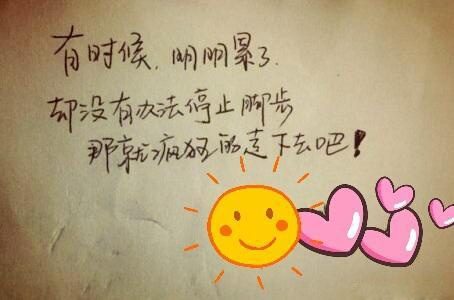 有时候，明明累了
却没有办法停止脚步
那就疯狂的走下去吧！